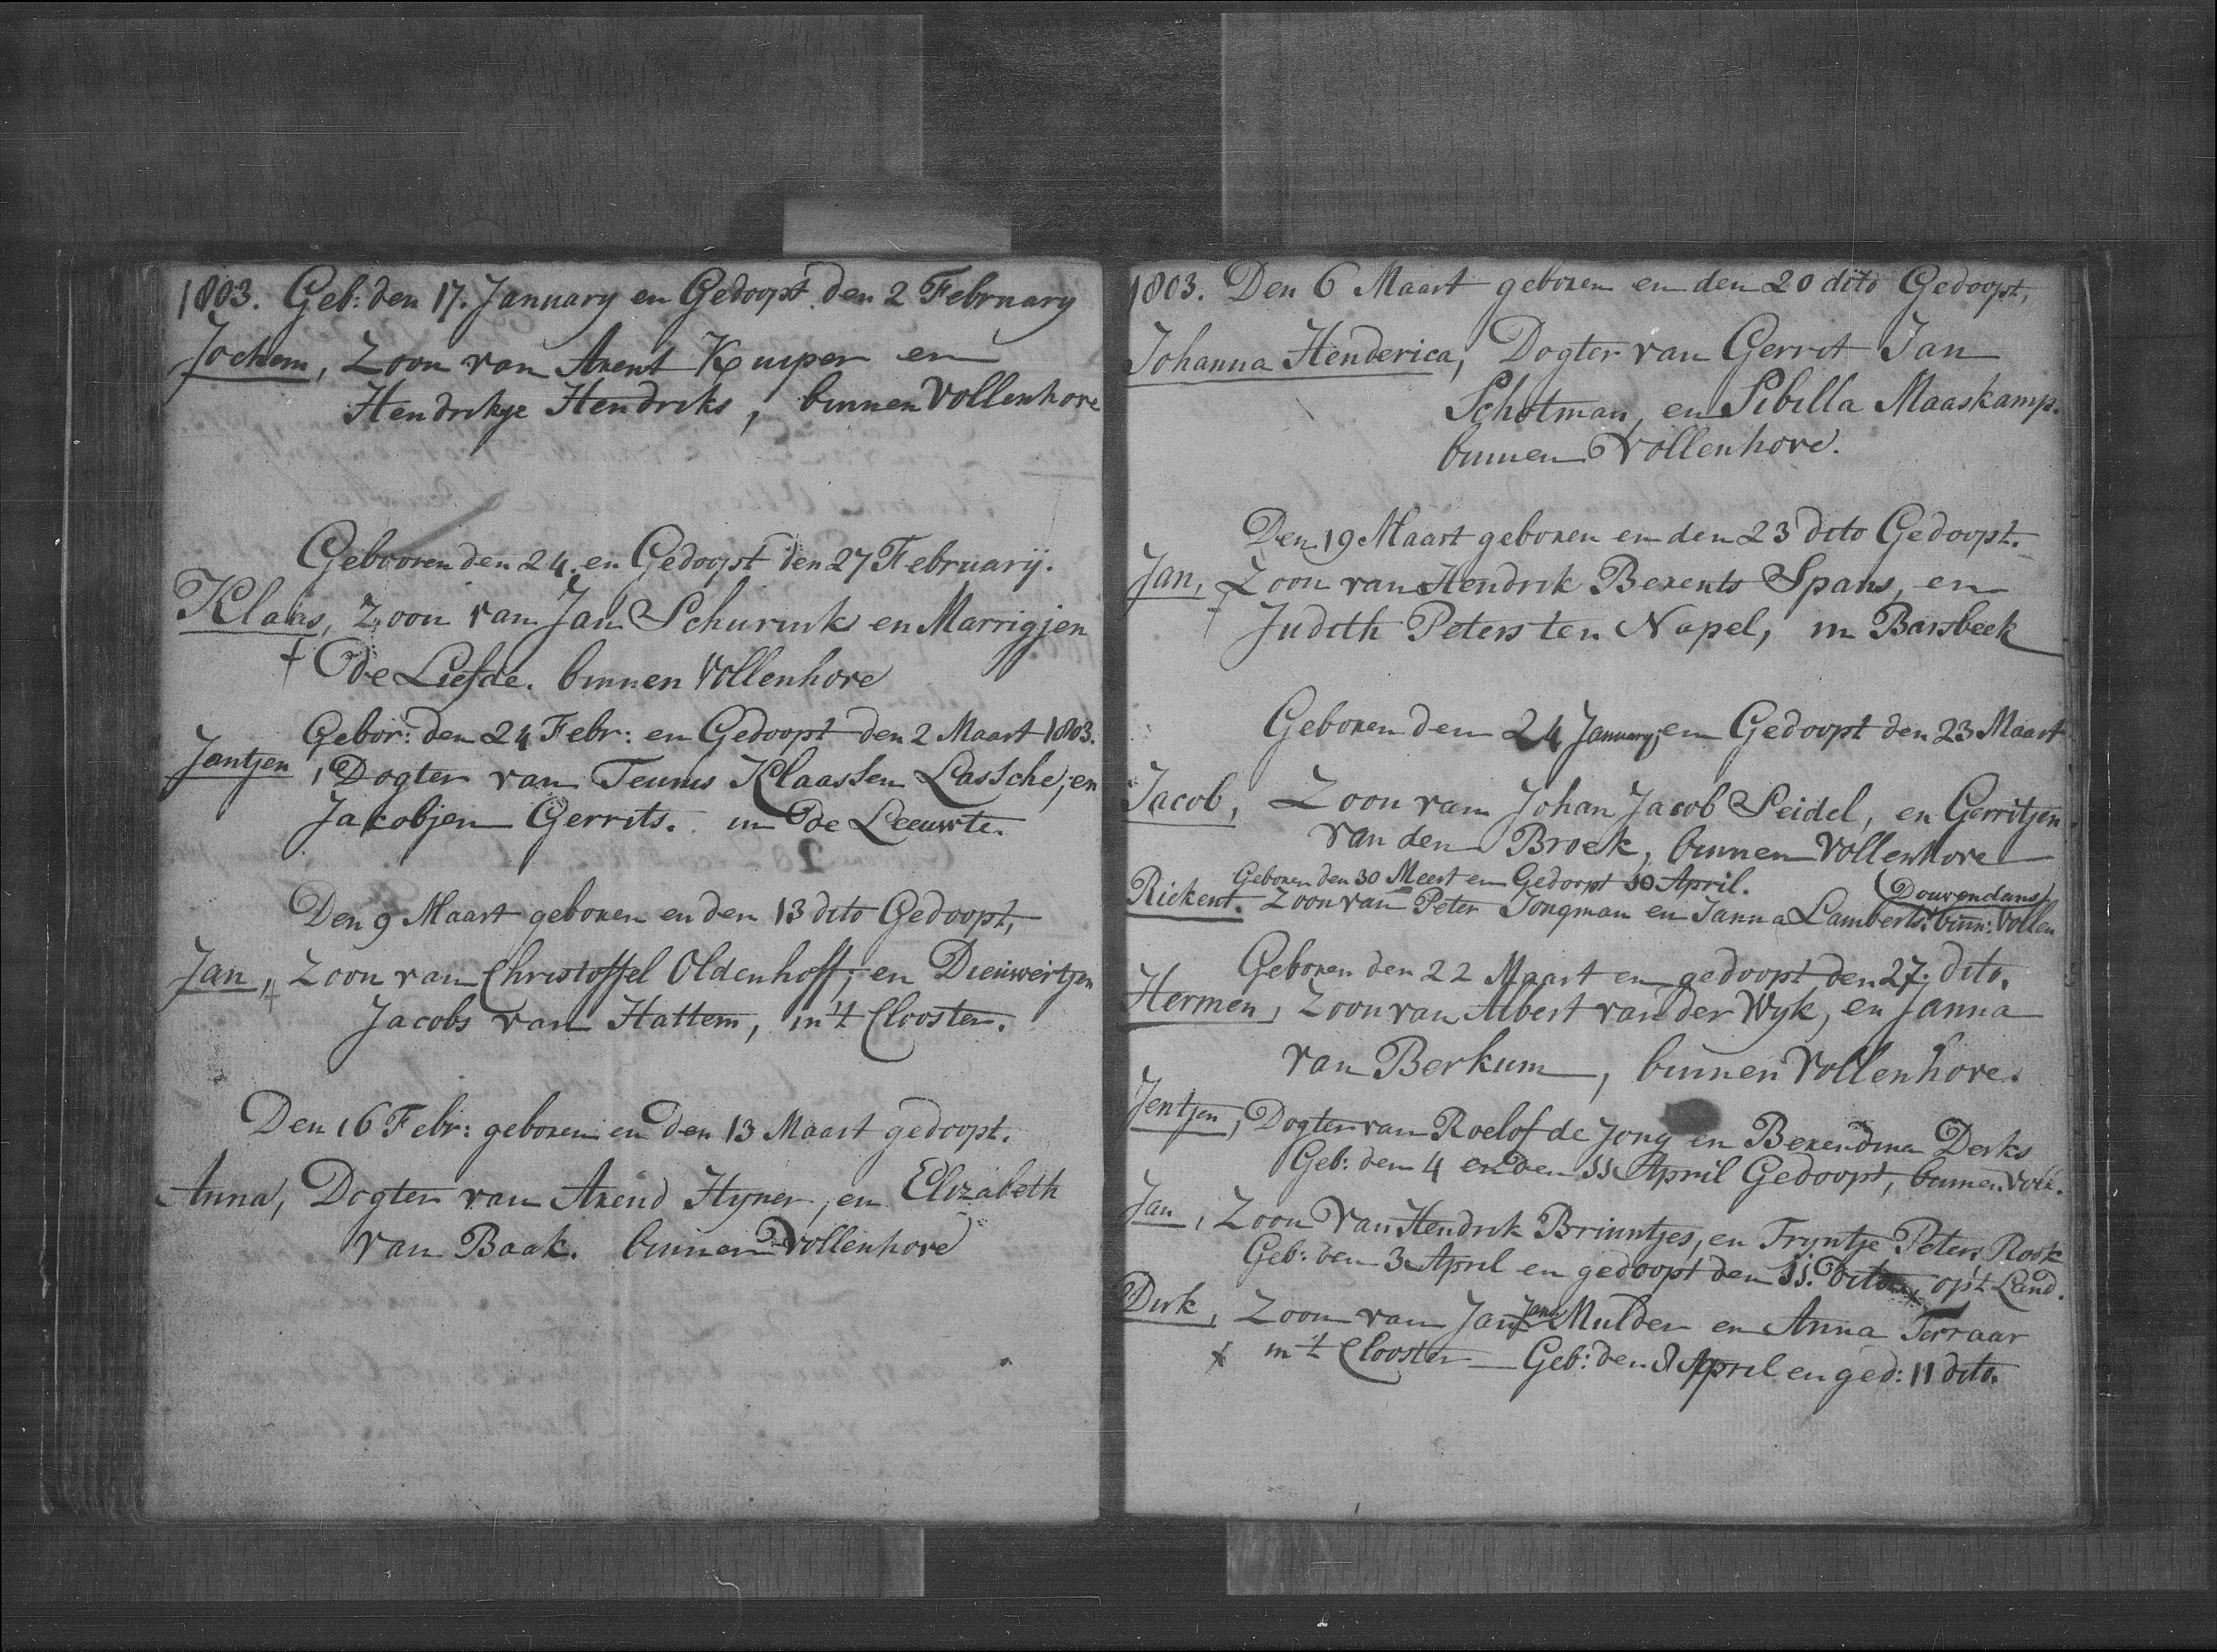 1803. Geb: den 17. January en Gedoopt den 2 February
Jochem, Zoon van Arent Kuiper en
Hendrikje Hendriks, binnen Vollenhove
Gebooren den 24. en Gedoopt den 27 Februarij.
Klaas, Zoon van Jan Schurink en Marrigjen
† de Liefde. binnen Vollenhove
Gebor: den 24 Febr: en Gedoopt den 2 Maart 1803.
Jantjen, Dogter van Teunis Klaassen Lassche, en
Jacobjen Gerrits. in de Leeuwte.
Den 9 Maart geboren en den 13 dito Gedoopt,
Jan, † Zoon van Christoffel Oldenhoff, en Dieuwertjen
Jacobs van Hattem, in't Clooster.
Den 16 Febr: geboren en den 13 Maart gedoopt.
Anna, Dogter van Arend Hyner, en Elizabeth
van Baak. binnen Vollenhove
1803. Den 6 Maart geboren en den 20 dito Gedoopt,
Johanna Henderica, Dogter van Gerrit Jan
Schotman, en Sibilla Maaskamp.
binnen Vollenhove.
Den 19 Maart geboren en den 23 dito Gedoopt.
Jan, † Zoon van Hendrik Berents Spans, en
Judith Peters ten Napel, in Barsbeek
Geboren den 24 January, en Gedoopt den 23 Maart
Jacob, Zoon van Johan Jacob Seidel, en Gerritjen
van den Broek, binnen Vollenhove
Geboren den 30 Meert en Gedoopt 10 April. (Douvendans)
Rickent. Zoon van Peter Jongman en Janna Lamberts. binn: Vollen
Geboren den 22 Maart en gedoopt den 27. dito.
Hermen, Zoon van Albert van der Wyk, en Janna
van Berkum, binnen Vollenhove.
Jentjen, Dogter van Roelof de Jong en Berendina Derks
Geb: den 4 en den 11 April Gedoopt, binnen Voll.
Jan, Zoon van Hendrik Bruintjes, en Tryntje Peters Rook
Geb: den 3 April en gedoopt den 11. dito, op't Land.
Dirk, Zoon van Jan Jans Mulder en Anna Terraar
† in 't Clooster Geb: den 8 April en ged: 11 dito.